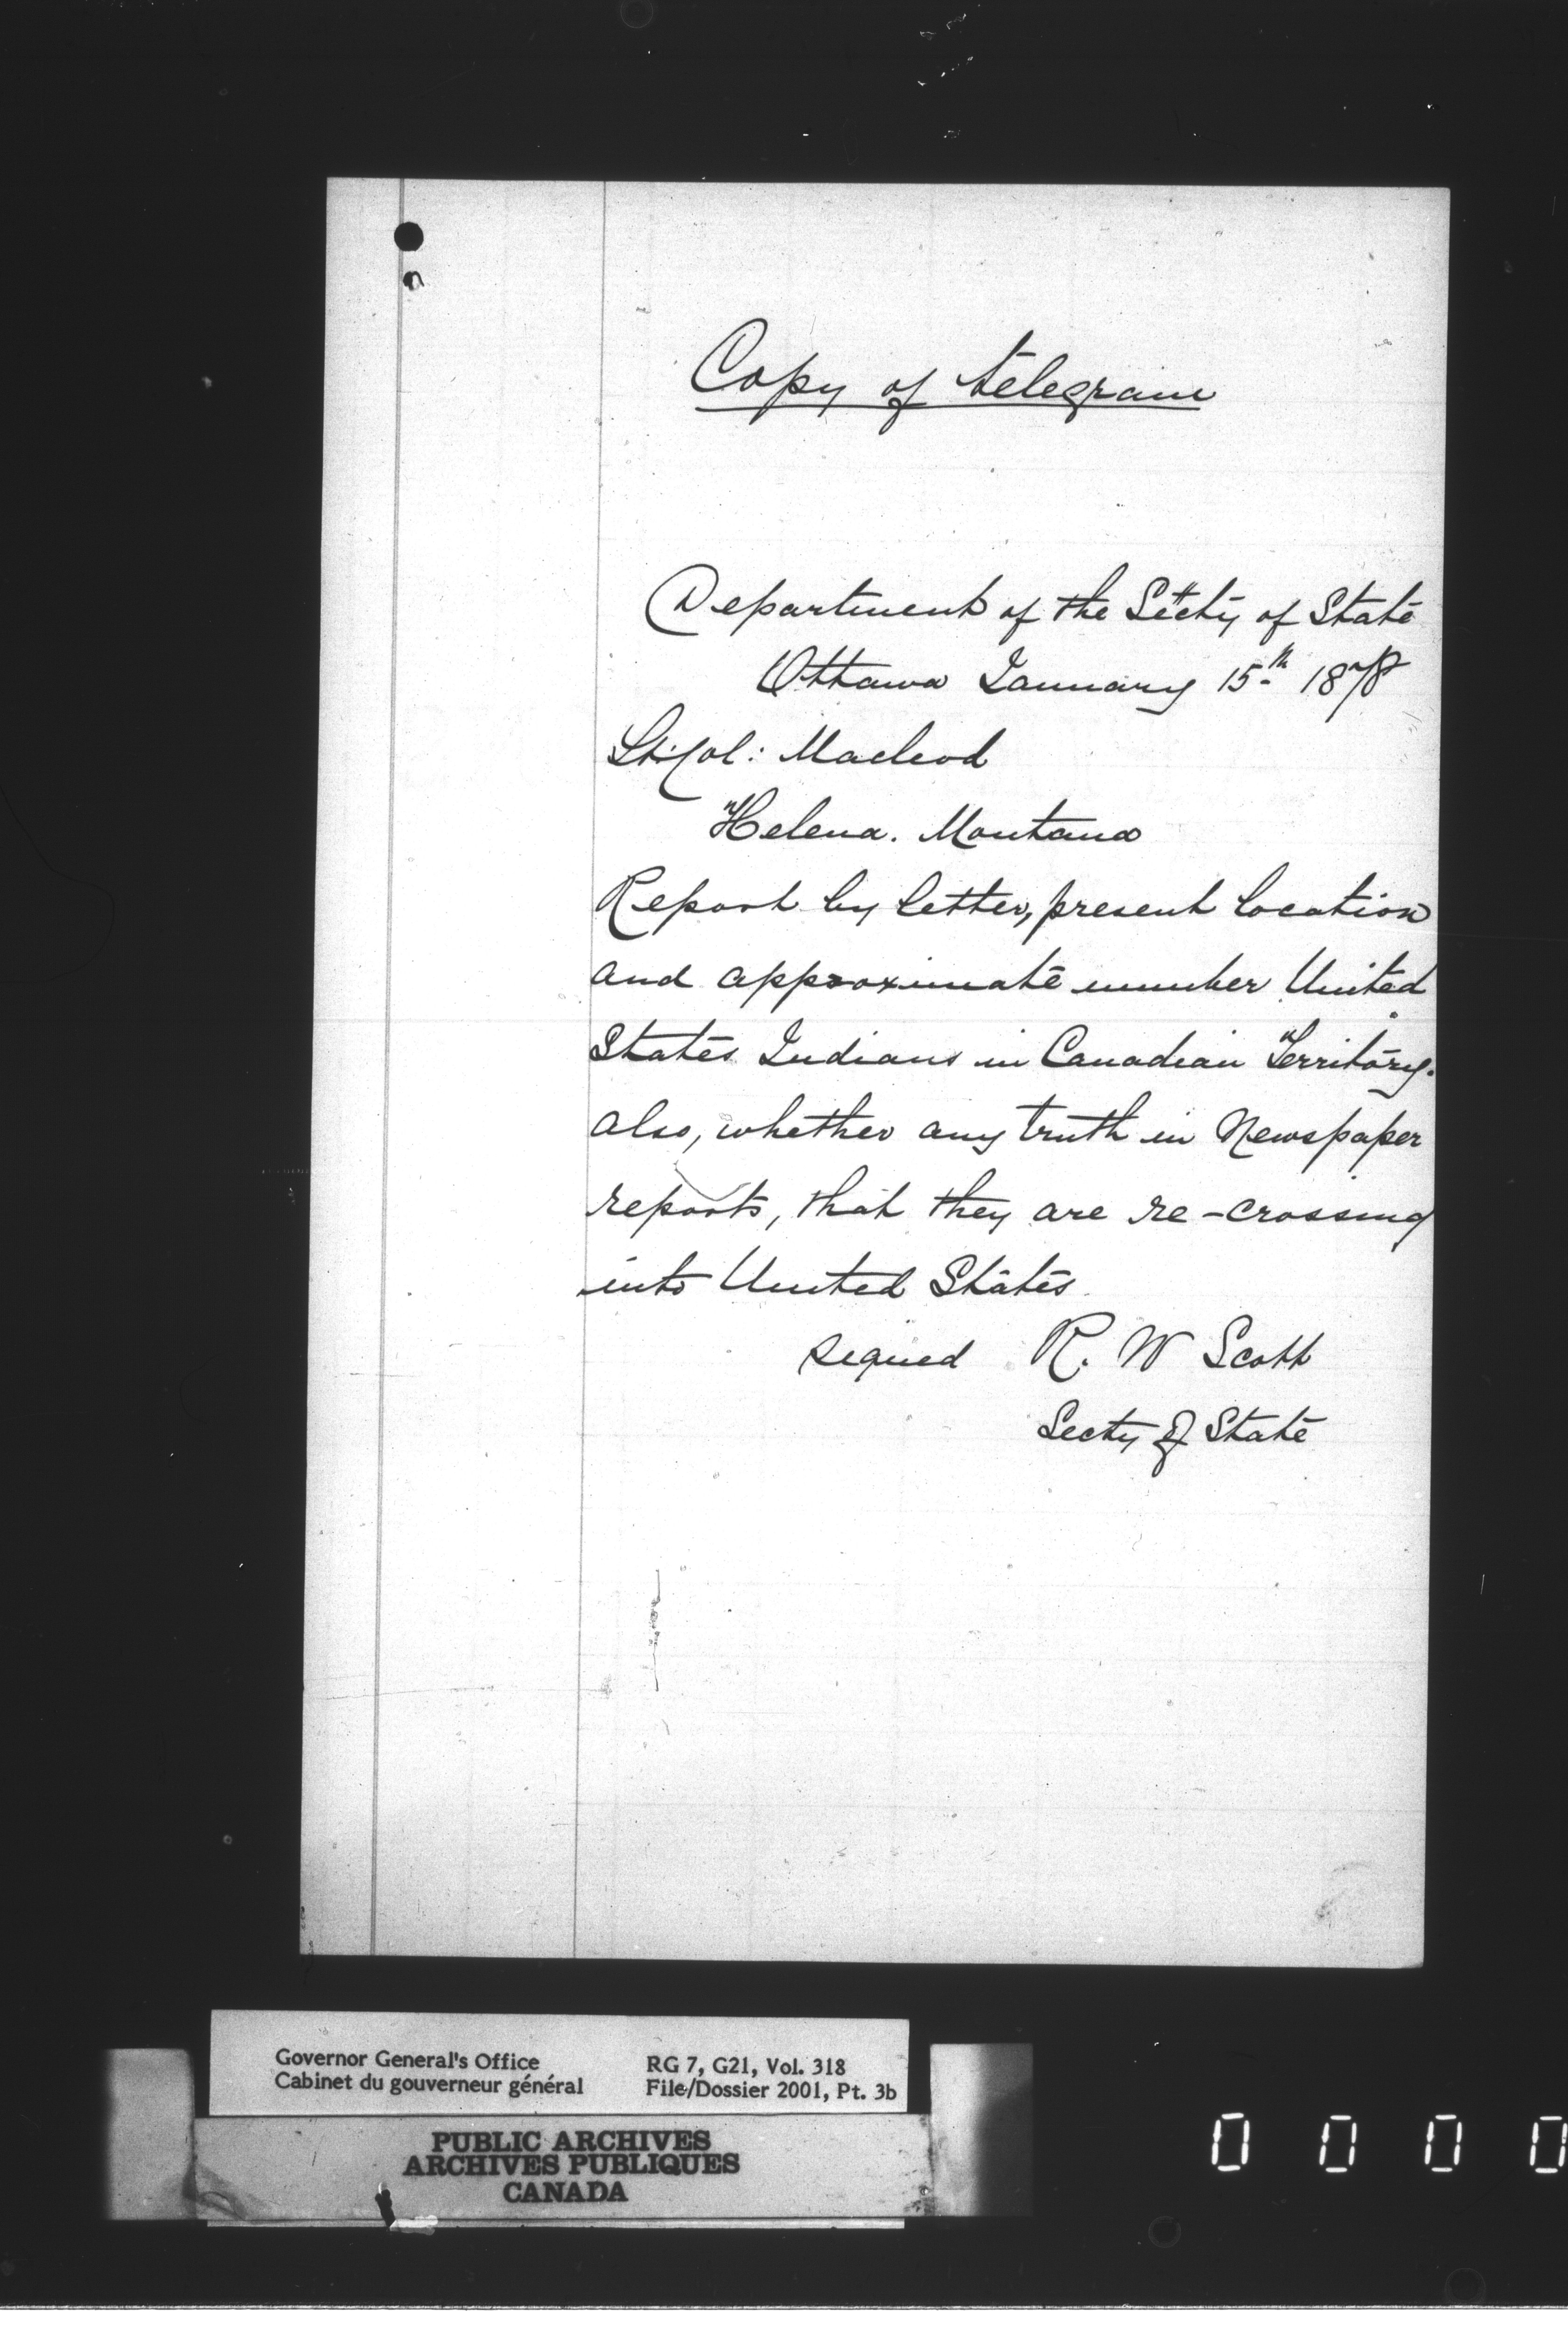 Copy of telegram
Department of the Secty of State
Ottawa January 15th 1878
Lt: Col: Macleod
Helena. Montana
Report by letter, present location
and approximate number United
States Indians in Canadian Territory.
also, whether any truth in Newspaper
reports, that they are re-crossing
into United States.
signed R. W Scott
Secty of State
Governor General's Office RG 7, G21, Vol. 318
Cabinet du gouverneur général File/Dossier 2001, Pt. 3b
PUBLIC ARCHIVES
ARCHIVES PUBLIQUES
CANADA
0 0 0 0